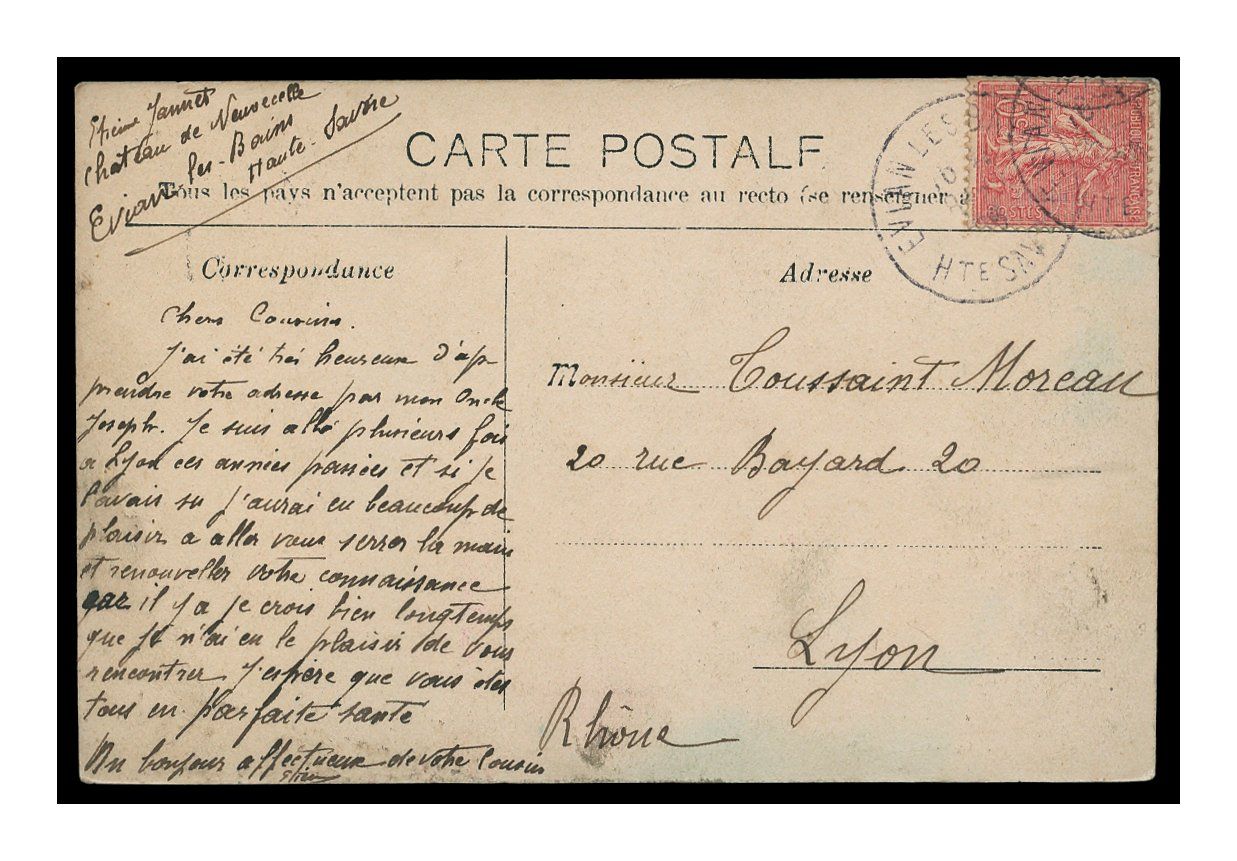 Etienne Jannet
Château de Neuvecelle
Evian les-Bains
Haute-Savoie
CARTE POSTALE
Tous les pays n'acceptent pas la correspondance au recto (se renseigner à
EVIAN LES B
HTE SAV
EVIAN
HTE
10
REPUBLIQUE FRANÇAISE
POSTES
Correspondance
Adresse
Chers Cousins.
J'ai été très heureuse d'ap
prendre votre adresse par mon Oncle
Joseph. Je suis allé plusieurs fois
a Lyon ces années passées et si je
l'avais su j'aurai eu beaucoup de
plaisir a aller vous serrer la main
et renouveller votre connaissance
car il y a je crois bien longtemps
que je n'ai eu le plaisir de vous
rencontrer J'espère que vous êtes
tous en parfaite santé
Un bonjour affectueux de votre Cousin
Etien
Monsieur Toussaint Moreau
20 rue Bayard 20
Lyon
Rhône